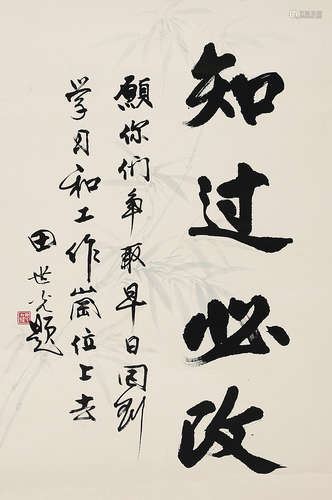 知过必改
願你们争取早日回到
学习和工作崗位上去
田世光题